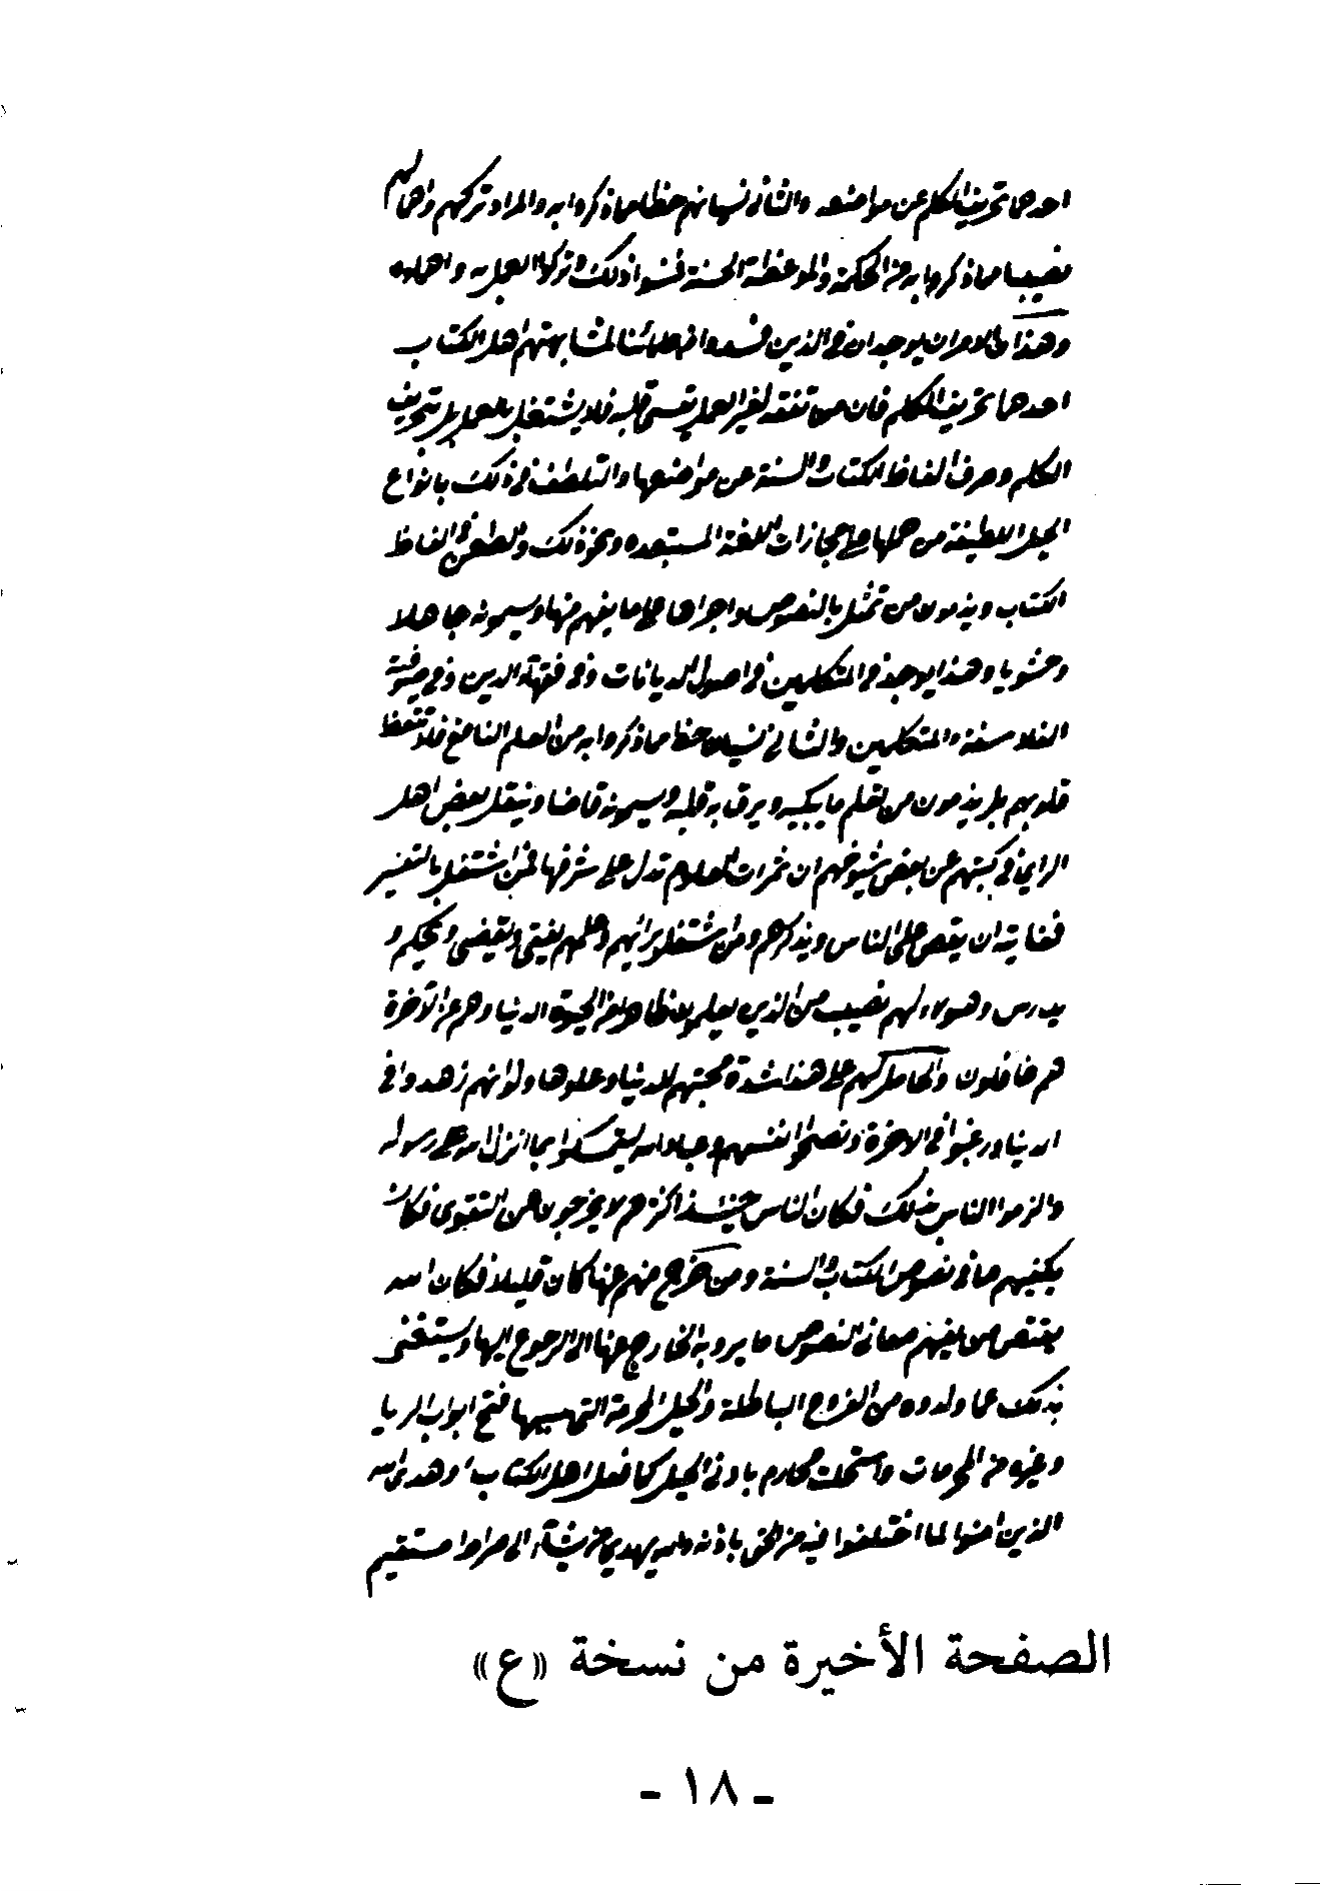 احدهما تحريف الكلم عن مواضعه والثاني نسيانهم حظا مما ذكروا به والمراد تركهم واهمالهم
نصيبا مما ذكروا به من الحكمة والموعظة الحسنة فنسوا ذلك وتركوا العمل به واهملوه
وهذان الامران يوجدان في الذين فسدوا من علمائنا لمشابهتهم اهل الكتاب
احدهما تحريف الكلم فان من تفقه لغير العمل يقسى قلبه فلا يشتغل بالعمل بل بتحريف
الكلم وصرف الفاظ الكتاب والسنة عن مواضعها والتلطف في ذلك بانواع
الحيل اللطيفة من حملها على مجازات اللغة المستبعده ونحو ذلك والطعن في الفاظ
الكتاب ويذمون من تمثل بالنصوص واجراها على ما يفهم منها ويسمونه جاهلا
وحشويا وهذا يوجد في المتكلمين في اصول الديانات وفي فقهآء الدين وفي صوفية
الفلاسفة والمتكلمين والثاني نسيان حظ مما ذكروا به من العلم النافع فلا تتعظ
قلوبهم بل يذمون من تعلم ما يبكيه ويرق به قلبه ويسمونه قاصا وينقل بعض اهل
الراي في كتبهم عن بعض شيوخهم ان ثمرات العلوم تدل على شرفها فمن اشتغل بالتفسير
فغايته ان يقص على الناس ويذكرهم ومن اشتغل برائيهم وعلمهم يفتي ويقضي ويحكم و
يدرس وهولاء لهم نصيب من الذين يعلمون ظاهرا من الحيوة الدنيا وهم عن الآخرة
هم غافلون والحامل لهم على هذا شدة محبتهم للدنيا وعلوها ولو انهم زهدوا في
الدنيا ورغبوا في الاخرة ونصحوا انفسهم وعباد الله لتمسكوا بما انزل الله على رسوله
والزموا الناس بذلك فكان الناس حينئذ اكثرهم لا يخرجون عن التقوى فكان
يكفيهم ما في نصوص الكتاب والسنة ومن خرج منهم عنها كان قليلا فكان الله
يقيض من يفهم معاني النصوص ما يرد به الخارج عنها الى الرجوع اليها ويستغنى
بذلك عما ولدوه من الفروع الباطلة والحيل المحرمة التي بسببها فتح ابواب الربا
وغيره من المحرمات واستحلت محارم الله بادنى الحيل كما فعل اهل الكتاب وهدى الله
الذين امنوا لما اختلفوا فيه من الحق باذنه والله يهدي من يشآء الى صراط مستقيم
الصفحة الأخيرة من نسخة «ع»
- ١٨ -